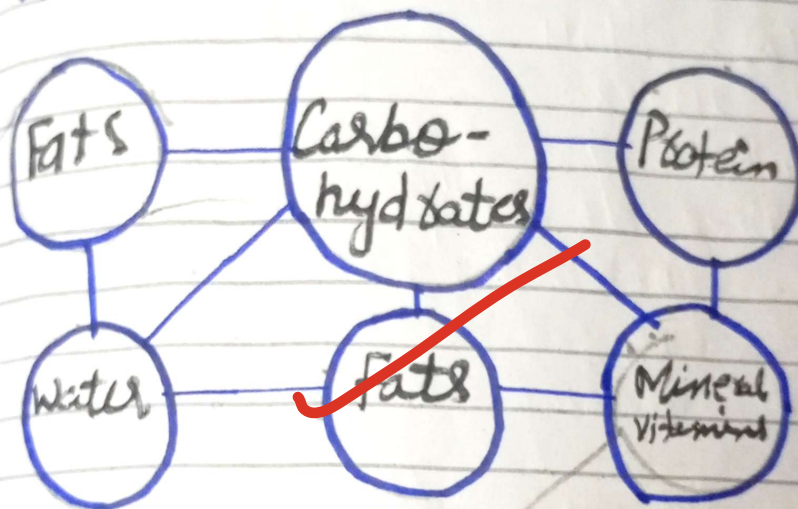 Fats
Carbo-
hydrates
Protein
Water
fats
Mineral
Vitamins